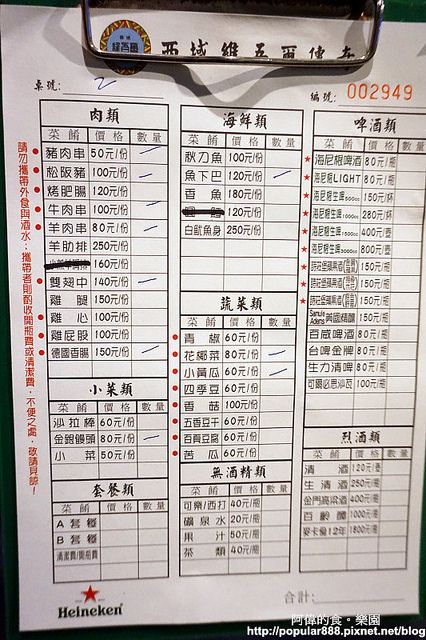 西域維吾爾傳奇
桌號: 2
編號: 002949
請勿攜帶外食與酒水；攜帶者則酌收開瓶費或清潔費，不便之處，敬請見諒！
肉類
菜餚 價格 數量
豬肉串 50元/份
松阪豬 100元/份
烤肥腸 120元/份
牛肉串 100元/份
羊肉串 80元/份
羊肋排 250元/份
160元/份
雙翅中 140元/份
雞腿 150元/份
雞心 100元/份
雞屁股 100元/份
德國香腸 150元/份
小菜類
菜餚 價格 數量
沙拉棒 60元/份
金銀饅頭 80元/份
小菜 50元/份
套餐類
菜餚 價格 數量
A套餐
B套餐
清潔費/開瓶費
海鮮類
菜餚 價格 數量
秋刀魚 100元/份
魚下巴 120元/份
香魚 180元/份
120元/份
白魽魚身 250元/份
蔬菜類
菜餚 價格 數量
青椒 60元/份
花椰菜 80元/份
小黃瓜 60元/份
四季豆 60元/份
香菇 100元/份
五香豆干 60元/份
百頁豆腐 60元/份
苦瓜 60元/份
無酒精類
菜餚 價格 數量
可樂/西打 40元/瓶
礦泉水 20元/瓶
果汁 50元/瓶
茶類 40元/瓶
啤酒類
菜餚 價格 數量
海尼根啤酒 80元/瓶
海尼根LIGHT 80元/瓶
海尼根生啤500cc 150元/杯
海尼根生啤1000cc 280元/杯
海尼根生啤 400元/壺
海尼根生啤3000cc 800元/壺
150元/瓶
150元/瓶
150元/瓶
Samuel Adams 美國精釀 150元/瓶
百威啤酒 80元/瓶
台啤金牌 80元/瓶
生力清啤 80元/瓶
可爾必思沙瓦 100元/瓶
烈酒類
菜餚 價格 數量
清酒 120元/壺
生清酒 250元/瓶
金門高粱酒 400元/瓶
百齡 1000元/瓶
麥卡倫12年 1800元/瓶
合計:
Heineken
阿偉的食。樂園
http://popular888.pixnet.net/blog